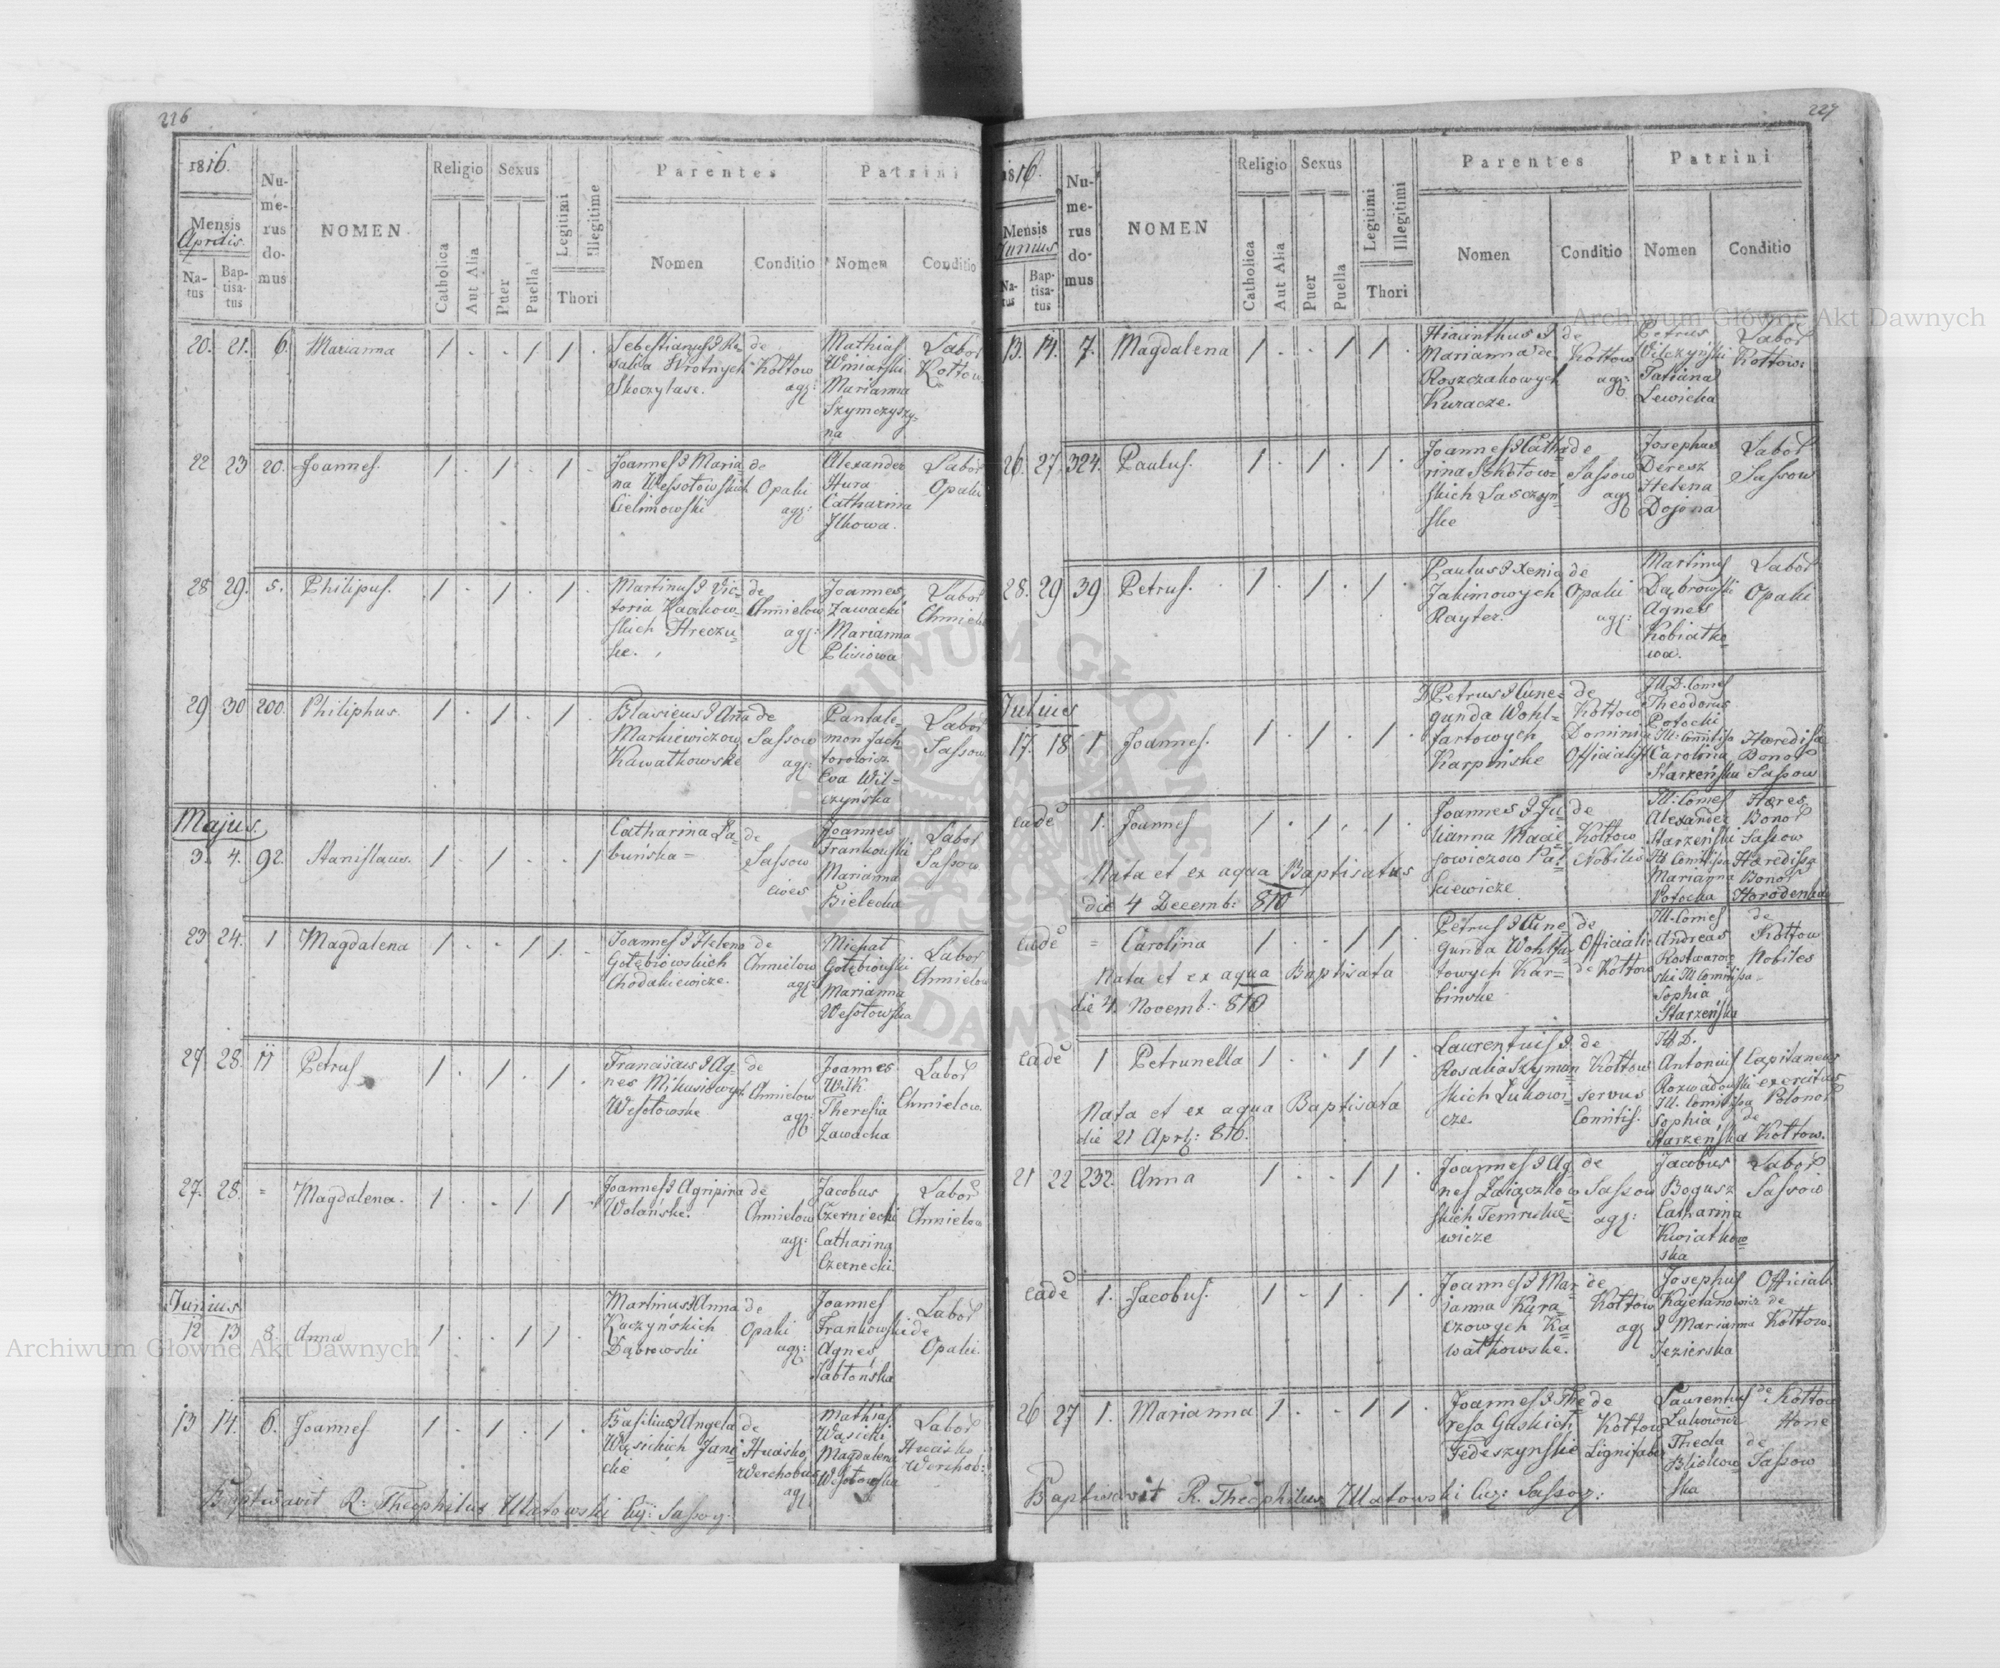 226
1816.
Mensis
Aprilis.
Natus
Baptisatus
Numerus domus
NOMEN
Religio
Catholica
Aut Alia
Sexus
Puer
Puella
Legitimi
Illegitime
Thori
Parentes
Nomen
Conditio
Patrini
Nomen
Conditio
20. 21. 6. Marianna 1 . . 1 1 .
Sebestianus & Ro=
salia Hrotnych
Skoczylase.
de
Kołtow
agr:
Mathias
Winiarski
Marianna
Szymczyszy=
na
Labor
Kołtow.
22 23 20. Joannes. 1 . 1 . 1 .
Joannes & Maria=
na Wessołowskich
Cielmowski
de
Opaki
agr:
Alexander
Hura
Catharina
Ilkowa.
Labor
Opaki
28 29. 5. Philipus. 1 . 1 . 1 .
Martinus & Vic=
toria Kaczkow=
skich Hreczu=
ke.
de
Chmielow
agr:
Joannes
Zawacki
Marianna
Plisiowa
Labor
Chmielo
29 30 200. Philiphus. 1 . 1 . 1 .
Blasieus & Anna
Markiewiczow
Kawalkowske
de
Sassow
agr:
Pantale=
mon Jach
torowicz
Eva Wil=
czyńska
Labor
Sassow.
Majus.
3. 4. 92. Stanislaus. 1 . 1 . . 1
Catharina Ła=
buńska =
de
Sassow
cives
Joannes
Frankowski
Marianna
Bielecka
Labor
Sassow.
23 24. 1 Magdalena 1 . . 1 1 .
Joannes & Helena
Gołębiowskich
Chodakiewicze.
de
Chmielow
agr:
Michał
Gołębiowski
Marianna
Wesołowska
Labor
Chmielow
27 28. 17 Petrus 1 . 1 . 1 .
Franciscus & Ag=
nes Mikusiowych
Wesołowske
de
Chmielow
agr:
Joannes
Wilk
Theresia
Zawacka
Labor
Chmielow.
27. 28. = Magdalena. 1 . . 1 1 .
Joannes & Agripina
Wolańske.
de
Chmielow
agr:
Jacobus
Czerniecki
Catharina
Czernecki
Labor
Chmielow
Junius
12 13 8. Anna 1 . . 1 1 .
Martinus & Anna
Kaczyńskich
Dąbrowski
de
Opaki
agr:
Joannes
Frankowski
Agnes
Jabłońska
Labor
de
Opaki.
13 14. 6. Joannes 1 . 1 . 1 .
Basilius & Angela
Wąsickich Jane=
de
Huisko
Werchobus
agr.
Mathias
Wąsicki
Magdalena
Wesołowska
Labor
Huisko
Werchob:
Baptisavit R: Theophilus Ulatowski
227
1816.
Mensis
Junius
Natus
Baptisatus
Numerus domus
NOMEN
Religio
Catholica
Aut Alia
Sexus
Puer
Puella
Legitimi
Illegitimi
Thori
Parentes
Nomen
Conditio
Patrini
Nomen
Conditio
13. 14. 7. Magdalena 1 . . 1 1 .
Hiacinthus &
Marianna de
Roszczakowych
Kuracze.
de
Kołtow
agr:
Petrus
Wilczyński
Tatiana
Lewicka
Labor
Kołtow:
26. 27. 324. Paulus. 1 . 1 . 1 .
Joannes & Catha
rina Sokołow=
skich Łasczyń
ske
de
Sassow
agr
Josephus
Deresz
Helena
Dojona
Labor
Sassow
28. 29 39 Petrus. 1 . 1 . 1 .
Paulus & Xenia
Jakimowych
Rayter.
de
Opaki
agr:
Martinus
Dąbrowski
Agnes
Kobiałko=
wa.
Labor
Opaki
Julius
17. 18 1 Joannes. 1 . 1 . 1 .
Petrus & Cune=
gunda Wohl=
fartowych
Karpińske
de
Kołtow
Dominii
Officialist
Ill. D. Comes
Theodorus
Potocki
Ill: Comitissa
Carolina
Starzeńska
Hæredissa
Bonor
Sassow
eadē 1. Joannes 1 . 1 . 1 .
Nata et ex aqua Baptisatus
die 4 Decemb: 810
Joannes & Ju=
lianna Maci=
jowiczow Pat=
kiewicze
de
Kołtow
Nobilis
Ill: Comes
Alexander
Starzeński
Ill Comitissa
Marianna
Potocka
Hæres
Bonor
Sassow
Hæredissa
Bonor
eadē = Carolina 1 . . 1 1 .
Nata et ex aqua Baptisata
die 4. Novemb: 810
Petrus & Cune=
gunda Wohlfar
towych Kar=
binske
de
Officialis
de Kołtow
Ill. Comes
Andreas
Rostworow=
ski Ill Comitissa
Sophia
Starzeńska
de
Kołtow
Nobiles
eadē 1 Petrunella 1 . . 1 1 .
Nata et ex aqua Baptisata
die 21 Apr: 816.
Laurentuis &
Rosalia Szyman
skich Lukowi=
cze.
de
Kołtow
servus
Comitis.
Ill D.
Antonius
Rozwadowski
Ill. Comitissa
Sophia
Starzeńska
Capitaneus
exercitus
Polonor
de
Kołtow.
21 22 232. Anna 1 . . 1 1 .
Joannes & Ag=
nes Zaiączkow
skich Temruke=
wicze
de
Sassow
agr:
Jacobus
Bogusz
Catharina
Kwiatkow
ska
Labor
Sassow
eadē 1. Jacobus. 1 . 1 . 1 .
Joannes & Mar
ianna Kura=
czowych Ka=
wałkowske.
de
Kołtow
agr
Josephus
Kajetanowicz
& Marianna
Jezierska
Official:
de
Kołtow.
26 27 1. Marianna 1 . . 1 1 .
Joannes & The
resa Guskich
Fedeszyńskie
de
Kołtow
Lignifaber
Laurentius
Lukowicz
Thecla
ska
de Kołtow
de
Sassow
Baptisavit R. Theophilus Ulatowski
Archiwum Główne Akt Dawnych
Archiwum Główne Akt Dawnych
ARCHIWUM GŁÓWNE AKT DAWNYCH